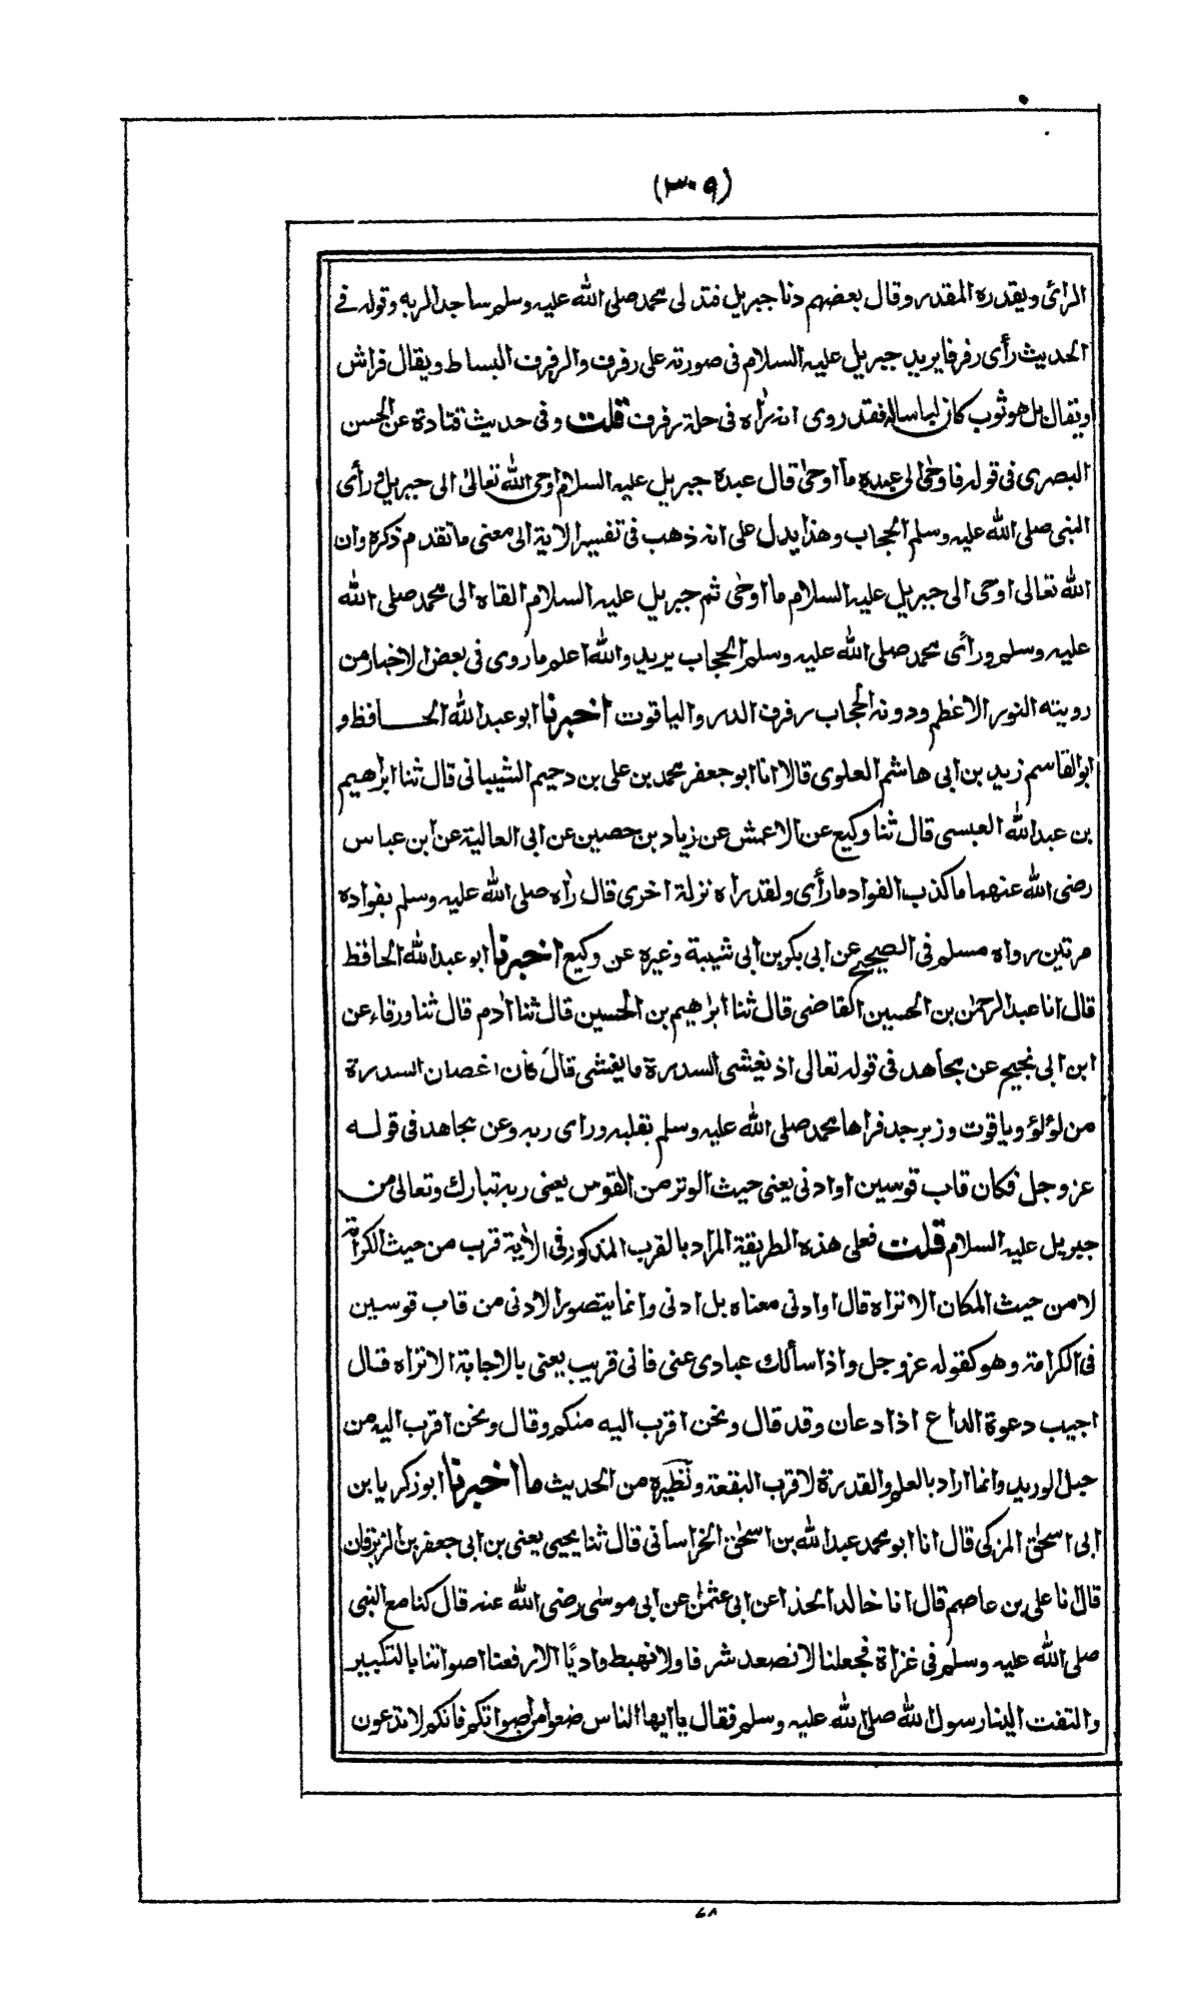 (٣٠٩)
الرائ ويقدره المقدر وقال بعضهم دنا جبريل فتدلى محمد صلى الله عليه وسلم ساجدا لربه وقوله في
الحديث رأى رفرفا يريد جبريل عليه السلام فى صورته على رفرف والرفرف البساط ويقال فراش
ويقال بل هو ثوب كان لباسا له فقد روى انه رآه فى حلة رفرف قلت وفى حديث قتادة عن الحسن
البصرى فى قوله فاوحى الى عبده ما اوحى قال عبده جبريل عليه السلام اوحى الله تعالى الى جبريل ورأى
النبى صلى الله عليه وسلم الحجاب وهذا يدل على انه ذهب فى تفسير الاية الى معنى ما تقدم ذكره وان
الله تعالى اوحى الى جبريل عليه السلام ما اوحى ثم جبريل عليه السلام القاه الى محمد صلى الله
عليه وسلم ورأى محمد صلى الله عليه وسلم الحجاب يريد والله اعلم ما روى فى بعض الاخبار من
رويته النور الاعظم ودونه الحجاب رفرف الدر والياقوت اخبرنا ابو عبد الله الحافظ و
ابو القاسم زيد بن ابى هاشم العلوى قالا انا ابو جعفر محمد بن على بن دحيم الشيبانى قال ثنا ابراهيم
بن عبد الله العبسى قال ثنا وكيع عن الاعمش عن زياد بن حصين عن ابى العالية عن ابن عباس
رضى الله عنهما ما كذب الفواد ما رأى ولقد راه نزلة اخرى قال رآه صلى الله عليه وسلم بفواده
مرتين رواه مسلم فى الصحيح عن ابى بكر بن ابى شيبة وغيره عن وكيع اخبرنا ابو عبد الله الحافظ
قال انا عبد الرحمن بن الحسين القاضى قال ثنا ابراهيم بن الحسين قال ثنا آدم قال ثنا ورقاء عن
ابن ابى نجيح عن مجاهد فى قوله تعالى اذ يغشى السدرة ما يغشى قال كان اغصان السدرة
من لؤلؤ وياقوت وزبرجد فراها محمد صلى الله عليه وسلم بقلبه وراى ربه وعن مجاهد فى قوله
عز وجل فكان قاب قوسين او ادنى يعنى حيث الوتر من القوس يعنى ربه تبارك وتعالى من
جبريل عليه السلام قلت فعلى هذه الطريقة المراد بالقرب المذكور فى الآية قرب من حيث الكرامة
لا من حيث المكان الا تراه قال او ادنى معناه بل ادنى وانما يتصور الادنى من قاب قوسين
فى الكرامة وهو كقوله عز وجل واذا سألك عبادى عنى فانى قريب يعنى بالاجابة الا تراه قال
اجيب دعوة الداع اذا دعان وقد قال ونحن اقرب اليه منكم وقال ونحن اقرب اليه من
حبل الوريد وانما اراد بالعلم والقدرة لا قرب البقعة ونظيره من الحديث ما اخبرنا ابو زكريا بن
ابى اسحٰق المزكى قال انا ابو محمد عبد الله بن اسحٰق الخراسانى قال ثنا يحيى يعنى بن ابى جعفر بن الزبرقان
قال انا على بن عاصم قال انا خالد الحذاء عن ابى عثمٰن عن ابى موسى رضى الله عنه قال كنا مع النبى
صلى الله عليه وسلم فى غزاة فجعلنا لا نصعد شرفا ولا نهبط واديًا الا رفعنا اصواتنا بالتكبير
والتفت الينا رسول الله صلى الله عليه وسلم فقال يا ايها الناس ضعوا من اصواتكم فانكم لا تدعون
٧٨